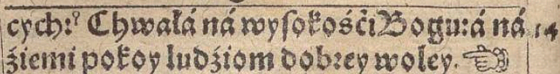 cych:⁹ Chwałá ná wyſokośći Bogu: á ná 14
źiemi pokoy ludźiom dobrey woley. ☜